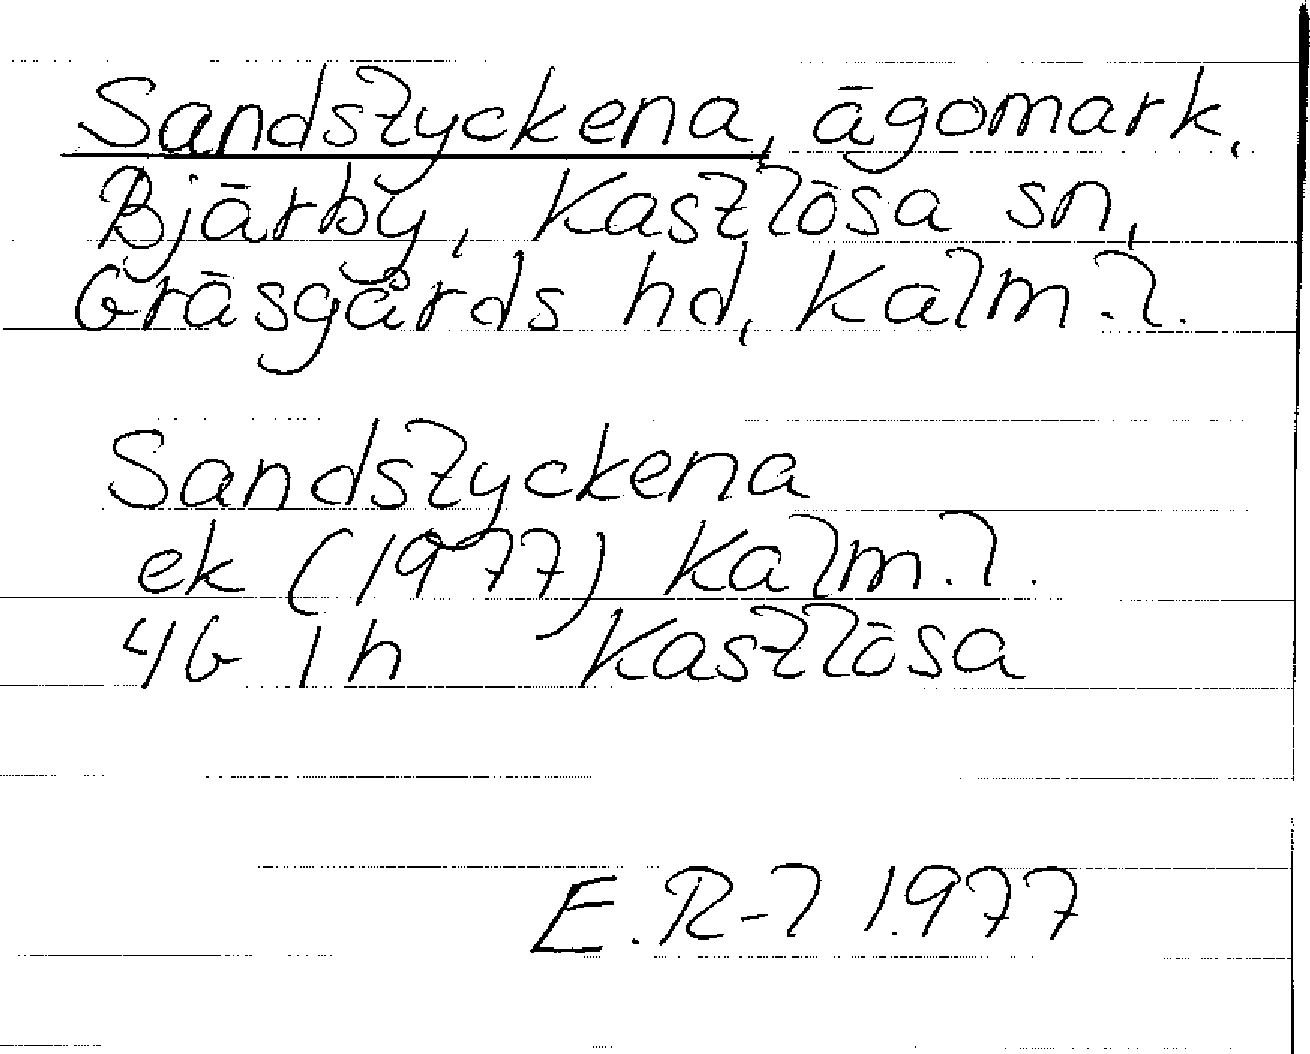 Sandstyckena, ägomark,
Bjärby, Kastlösa sn,
Gräsgårds hd, Kalm. l.
Sandstyckena
ek (1977) Kalm. l.
4G 1h Kastlösa
E.R-l 1977